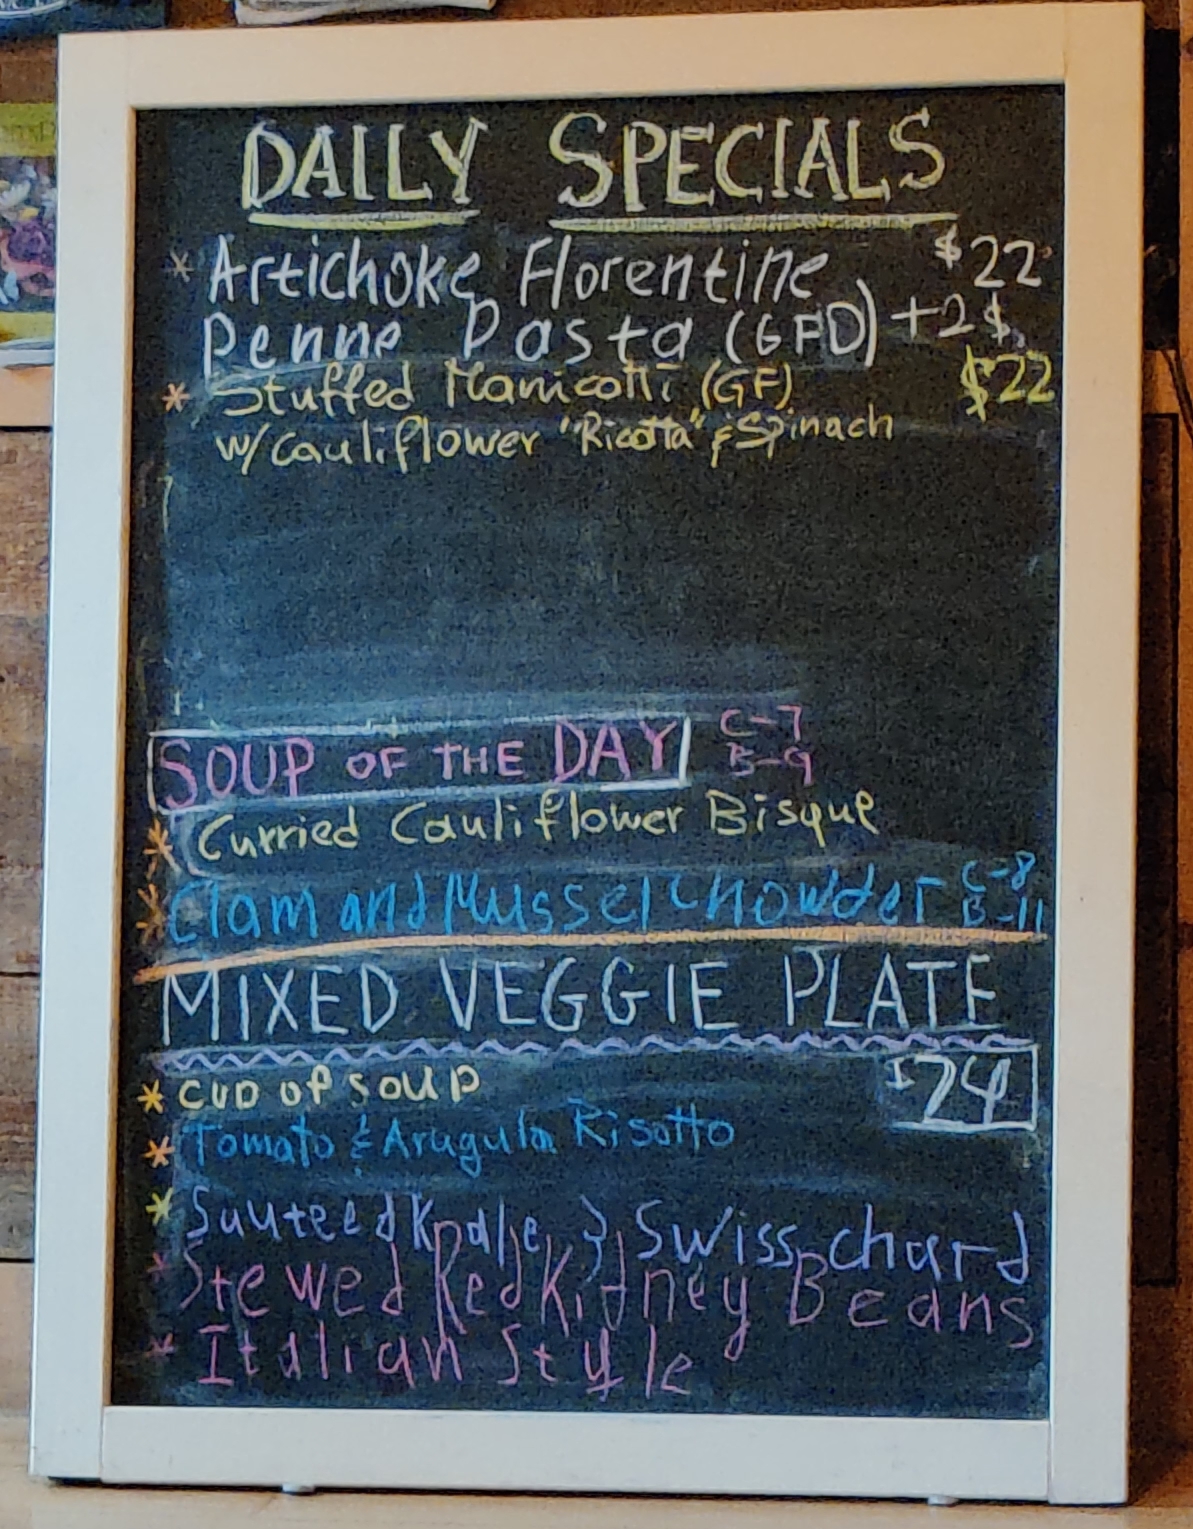 DAILY SPECIALS
* Artichoke Florentine $22
Penne Pasta (GFD) +2$
* Stuffed Manicotti (GF) $22
w/Cauliflower "Ricotta" & Spinach
SOUP OF THE DAY C-7
B-9
* Curried Cauliflower Bisque
* Clam and Mussel Chowder C-8
B-11
MIXED VEGGIE PLATE
* CUP OF SOUP $24
* Tomato & Arugula Risotto
* Sauteed Kale & Swiss chard
* Stewed Red Kidney Beans
* Italian Style